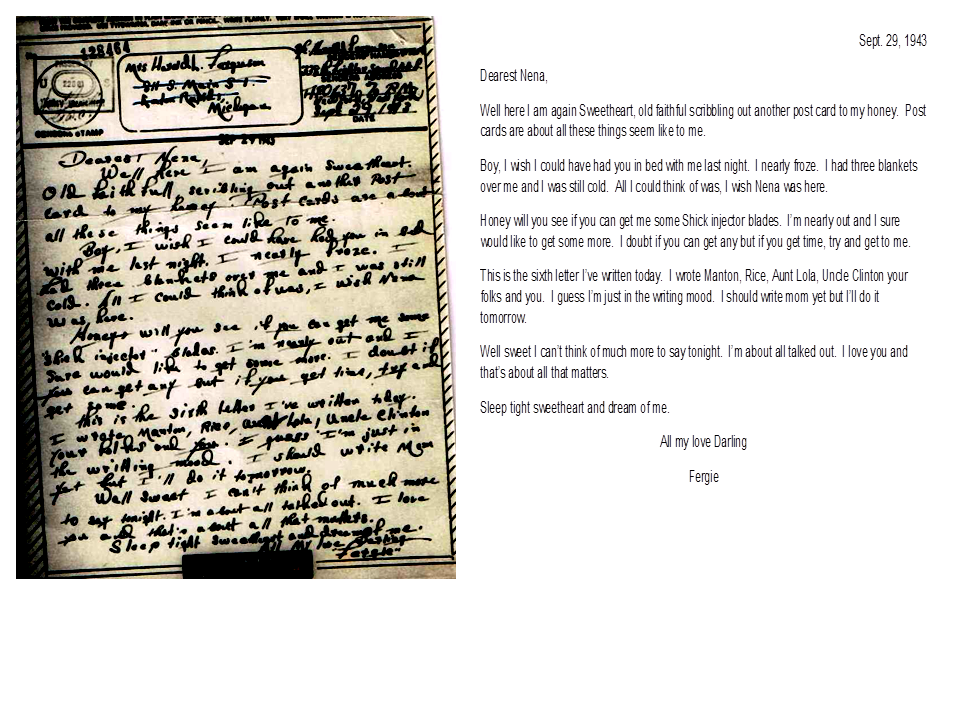 128464
Mrs Harold L. Ferguson
Michigan
DATE
SEP 29 1943
Dearest Nena,
Well here I am again Sweetheart.
Old faithfull scribling out another Post
Card to my honey. Post Cards are about
all these things seem like to me.
Boy, I wish I could have had you in bed
with me last night. I nearly froze. I
had three blankets over me and I was still
cold. All I could think of was, I wish Nena
was here.
Honey will you see if you can get me some
"Shick injector" blades. I'm nearly out and I
sure would like to get some more. I doubt if
you can get any but if you get time, try and
get some.
This is the sixth letter I've written today.
I wrote Manton, Rice, aunt Lola, Uncle Clinton
your folks and you. I guess I'm just in
the writting mood. I should write Mom
yet but I'll do it tomorrow.
Well sweet I can't think of much more
to say tonight. I'm about all talked out. I love
you and that's about all that matters.
Sleep tight sweetheart and dream of me.
All my love Darling
"Fergie"
Sept. 29, 1943
Dearest Nena,
Well here I am again Sweetheart, old faithful scribbling out another post card to my honey. Post
cards are about all these things seem like to me.
Boy, I wish I could have had you in bed with me last night. I nearly froze. I had three blankets
over me and I was still cold. All I could think of was, I wish Nena was here.
Honey will you see if you can get me some Shick injector blades. I'm nearly out and I sure
would like to get some more. I doubt if you can get any but if you get time, try and get to me.
This is the sixth letter I've written today. I wrote Manton, Rice, Aunt Lola, Uncle Clinton your
folks and you. I guess I'm just in the writing mood. I should write mom yet but I'll do it
tomorrow.
Well sweet I can't think of much more to say tonight. I'm about all talked out. I love you and
that's about all that matters.
Sleep tight sweetheart and dream of me.
All my love Darling
Fergie